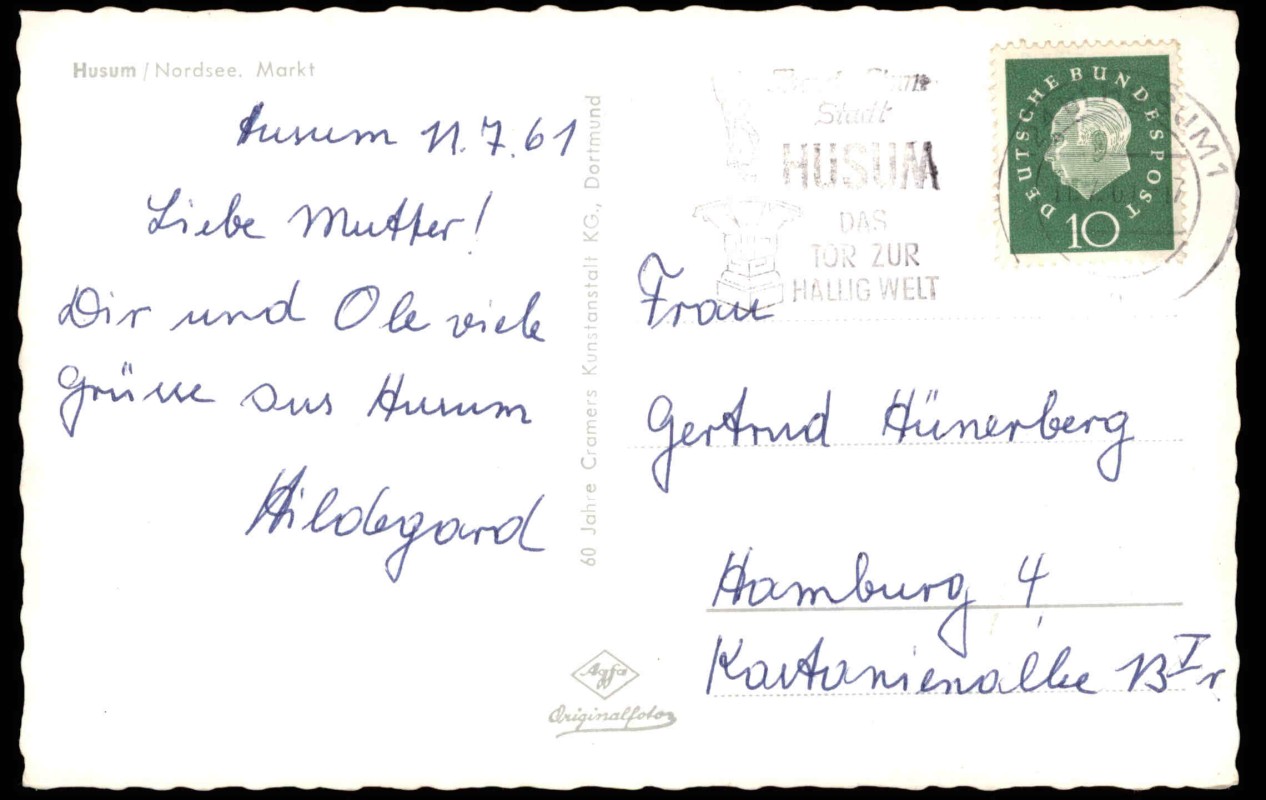 Husum / Nordsee. Markt
Husum 11.7.61
Liebe Mutter!
Dir und Ole viele
Grüsse aus Husum
Hildegard
60 Jahre Cramers Kunstanstalt KG., Dortmund
Agfa
Originalfoto
Stadt
HUSUM
DAS
TOR ZUR
HALLIG WELT
DEUTSCHE BUNDESPOST
10
HUSUM 1
Frau
Gertrud Hünerberg
Hamburg 4
Kastanienallee 13 I r